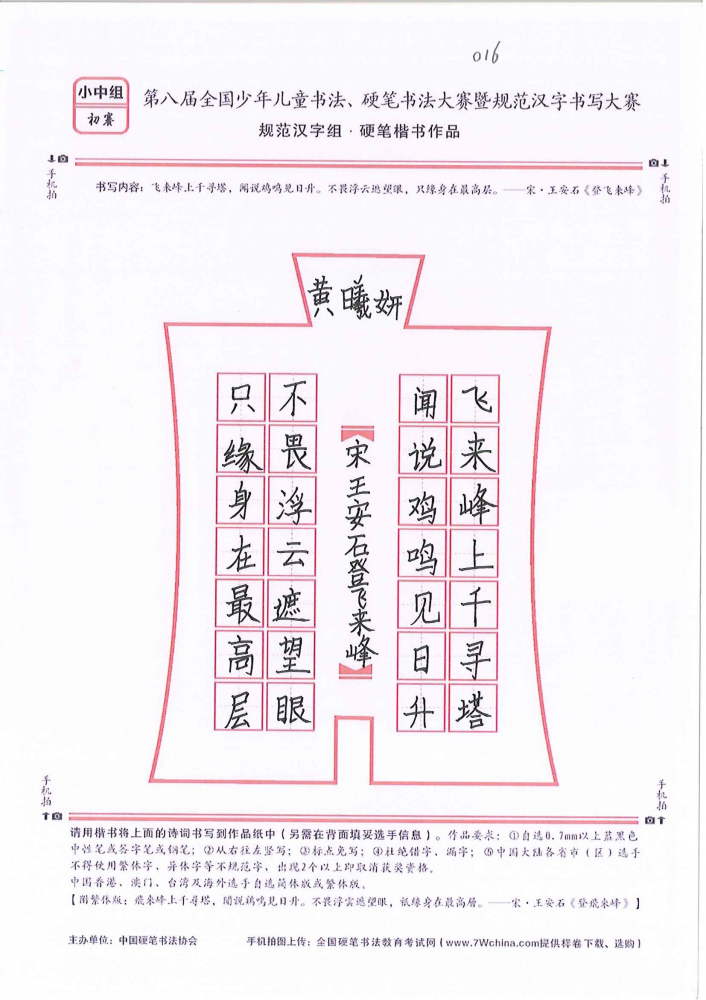 016
小中组
初赛
第八届全国少年儿童书法、硬笔书法大赛暨规范汉字书写大赛
规范汉字组·硬笔楷书作品
手机拍
手机拍
书写内容：飞来峰上千寻塔，闻说鸡鸣见日升。不畏浮云遮望眼，只缘身在最高层。——宋·王安石《登飞来峰》
黄曦妍
飞来峰上千寻塔
闻说鸡鸣见日升
宋王安石登飞来峰
不畏浮云遮望眼
只缘身在最高层
手机拍
手机拍
请用楷书将上面的诗词书写到作品纸中（另需在背面填妥选手信息）。作品要求：①自选0.7mm以上蓝黑色
中性笔或签字笔或钢笔；②从右往左竖写；③标点免写；④杜绝错字、漏字；⑤中国大陆各省市（区）选手
不得使用繁体字、异体字等不规范字，出现2个以上即取消获奖资格。
中国香港、澳门、台湾及海外选手自选简体版或繁体版。
【附繁体版：飛來峰上千尋塔，聞說鷄鳴見日升。不畏浮雲遮望眼，祇緣身在最高層。——宋·王安石《登飛來峰》】
主办单位：中国硬笔书法协会
手机拍图上传：全国硬笔书法教育考试网（www.7Wchina.com提供样卷下载、选购）